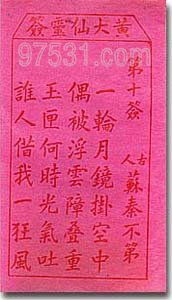 黃大仙靈簽
97531.com
第十簽
古人
蘇秦不第
一輪月鏡掛空中
偶被浮雲障叠重
玉匣何時光氣吐
誰人借我一狂風